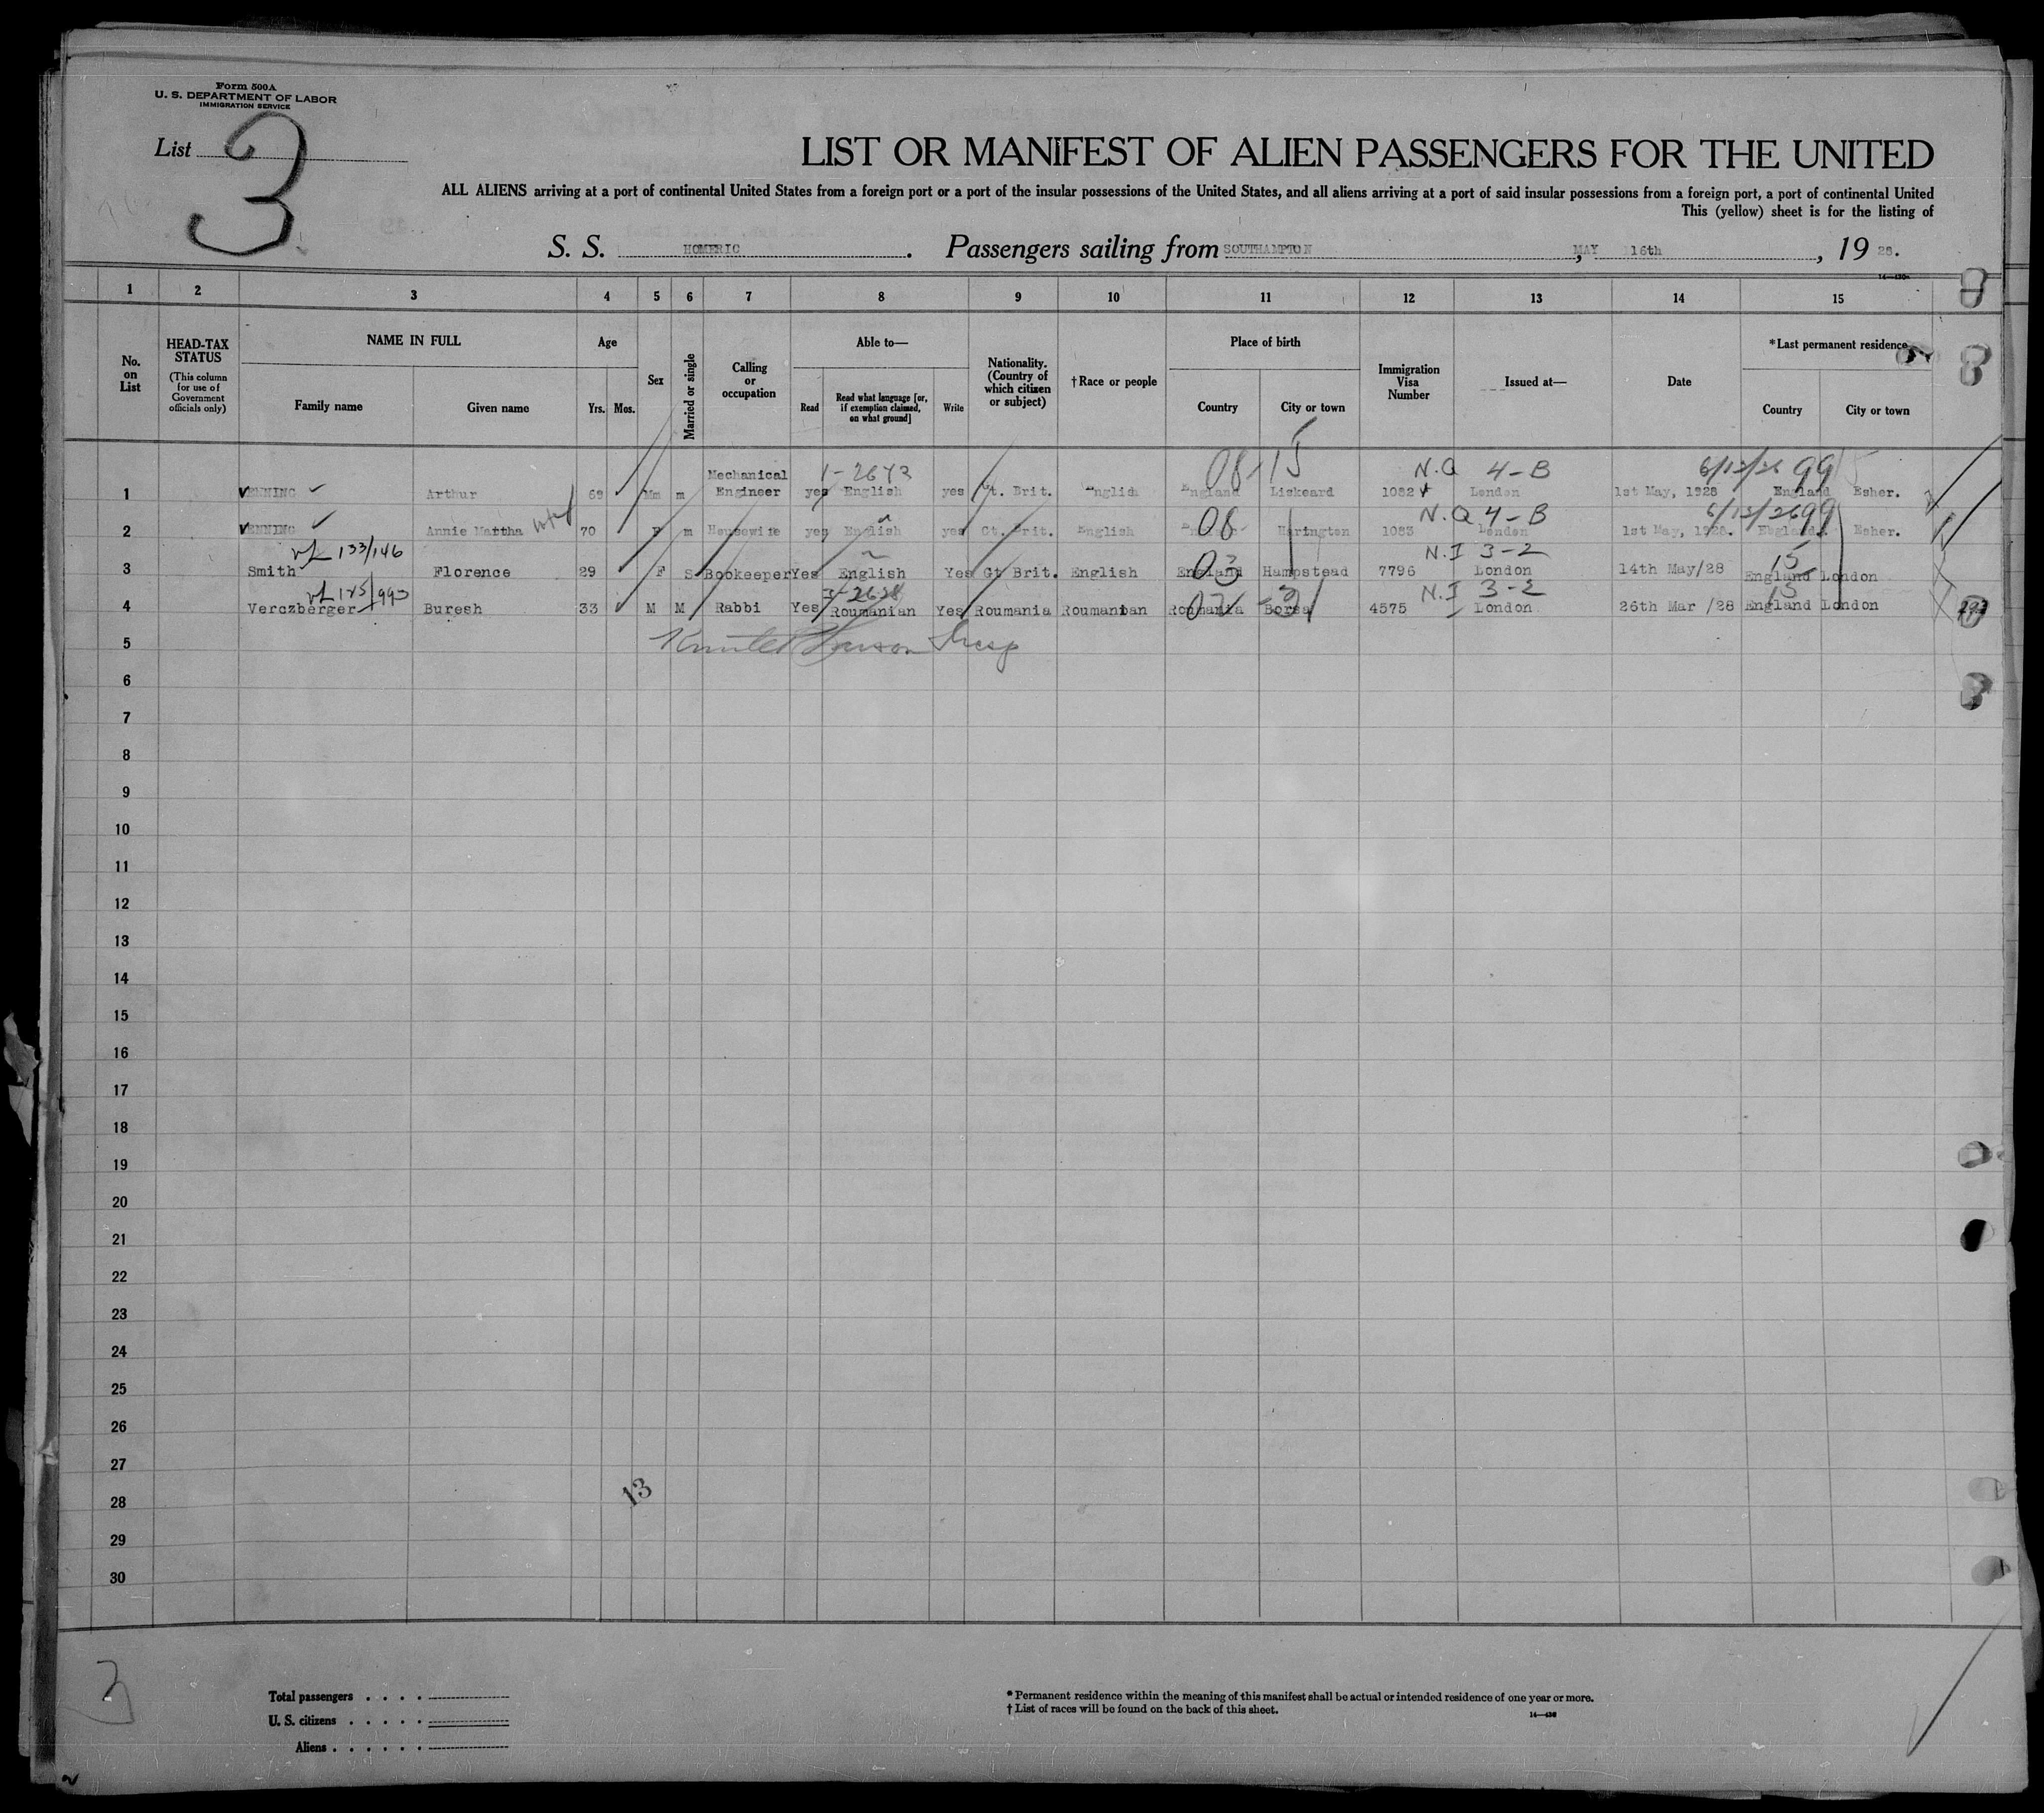 Form 500A
U. S. DEPARTMENT OF LABOR
IMMIGRATION SERVICE
List 3
LIST OR MANIFEST OF ALIEN PASSENGERS FOR THE UNITED
ALL ALIENS arriving at a port of continental United States from a foreign port or a port of the insular possessions of the United States, and all aliens arriving at a port of said insular possessions from a foreign port, a port of continental United
This (yellow) sheet is for the listing of
S. S. HOMERIC. Passengers sailing from SOUTHAMPTON, MAY 16th, 19 28.
1 2 3 4 5 6 7 8 9 10 11 12 13 14 15
No. on List
HEAD-TAX STATUS
(This column for use of Government officials only)
NAME IN FULL
Family name Given name
Age
Yrs. Mos.
Sex
Married or single
Calling or occupation
Able to—
Read
Read what language [or, if exemption claimed, on what ground]
Write
Nationality. (Country of which citizen or subject)
† Race or people
Place of birth
Country City or town
Immigration Visa Number
Issued at—
Date
* Last permanent residence
Country City or town
08-15 N.Q 4-B 99
1 VENNING Arthur 68 m Mechanical Engineer yes English yes Gt. Brit. English England Liskeard 1082 London 1st May, 1928 England Esher.
08 N.Q 4-B 99
2 VENNING Annie Martha 70 F m Housewife yes English yes Gt. Brit. English Harington 1083 London 1st May, 1928. England. Esher.
133/146 03 N.I 3-2 15
3 Smith Florence 29 F S Bookeeper Yes English Yes Gt Brit. English England Hampstead 7796 London 14th May/28 England London
N.I 3-2 15
4 Verczberger Buresh 33 M M Rabbi Yes Roumanian Yes Roumania Roumanian Roumania Borsa 4575 London 26th Mar /28 England London
5
6
7
8
9
10
11
12
13
14
15
16
17
18
19
20
21
22
23
24
25
26
27
13
28
29
30
3
Total passengers . . . .
U. S. citizens . . . . .
Aliens . . . . . .
* Permanent residence within the meaning of this manifest shall be actual or intended residence of one year or more.
† List of races will be found on the back of this sheet.